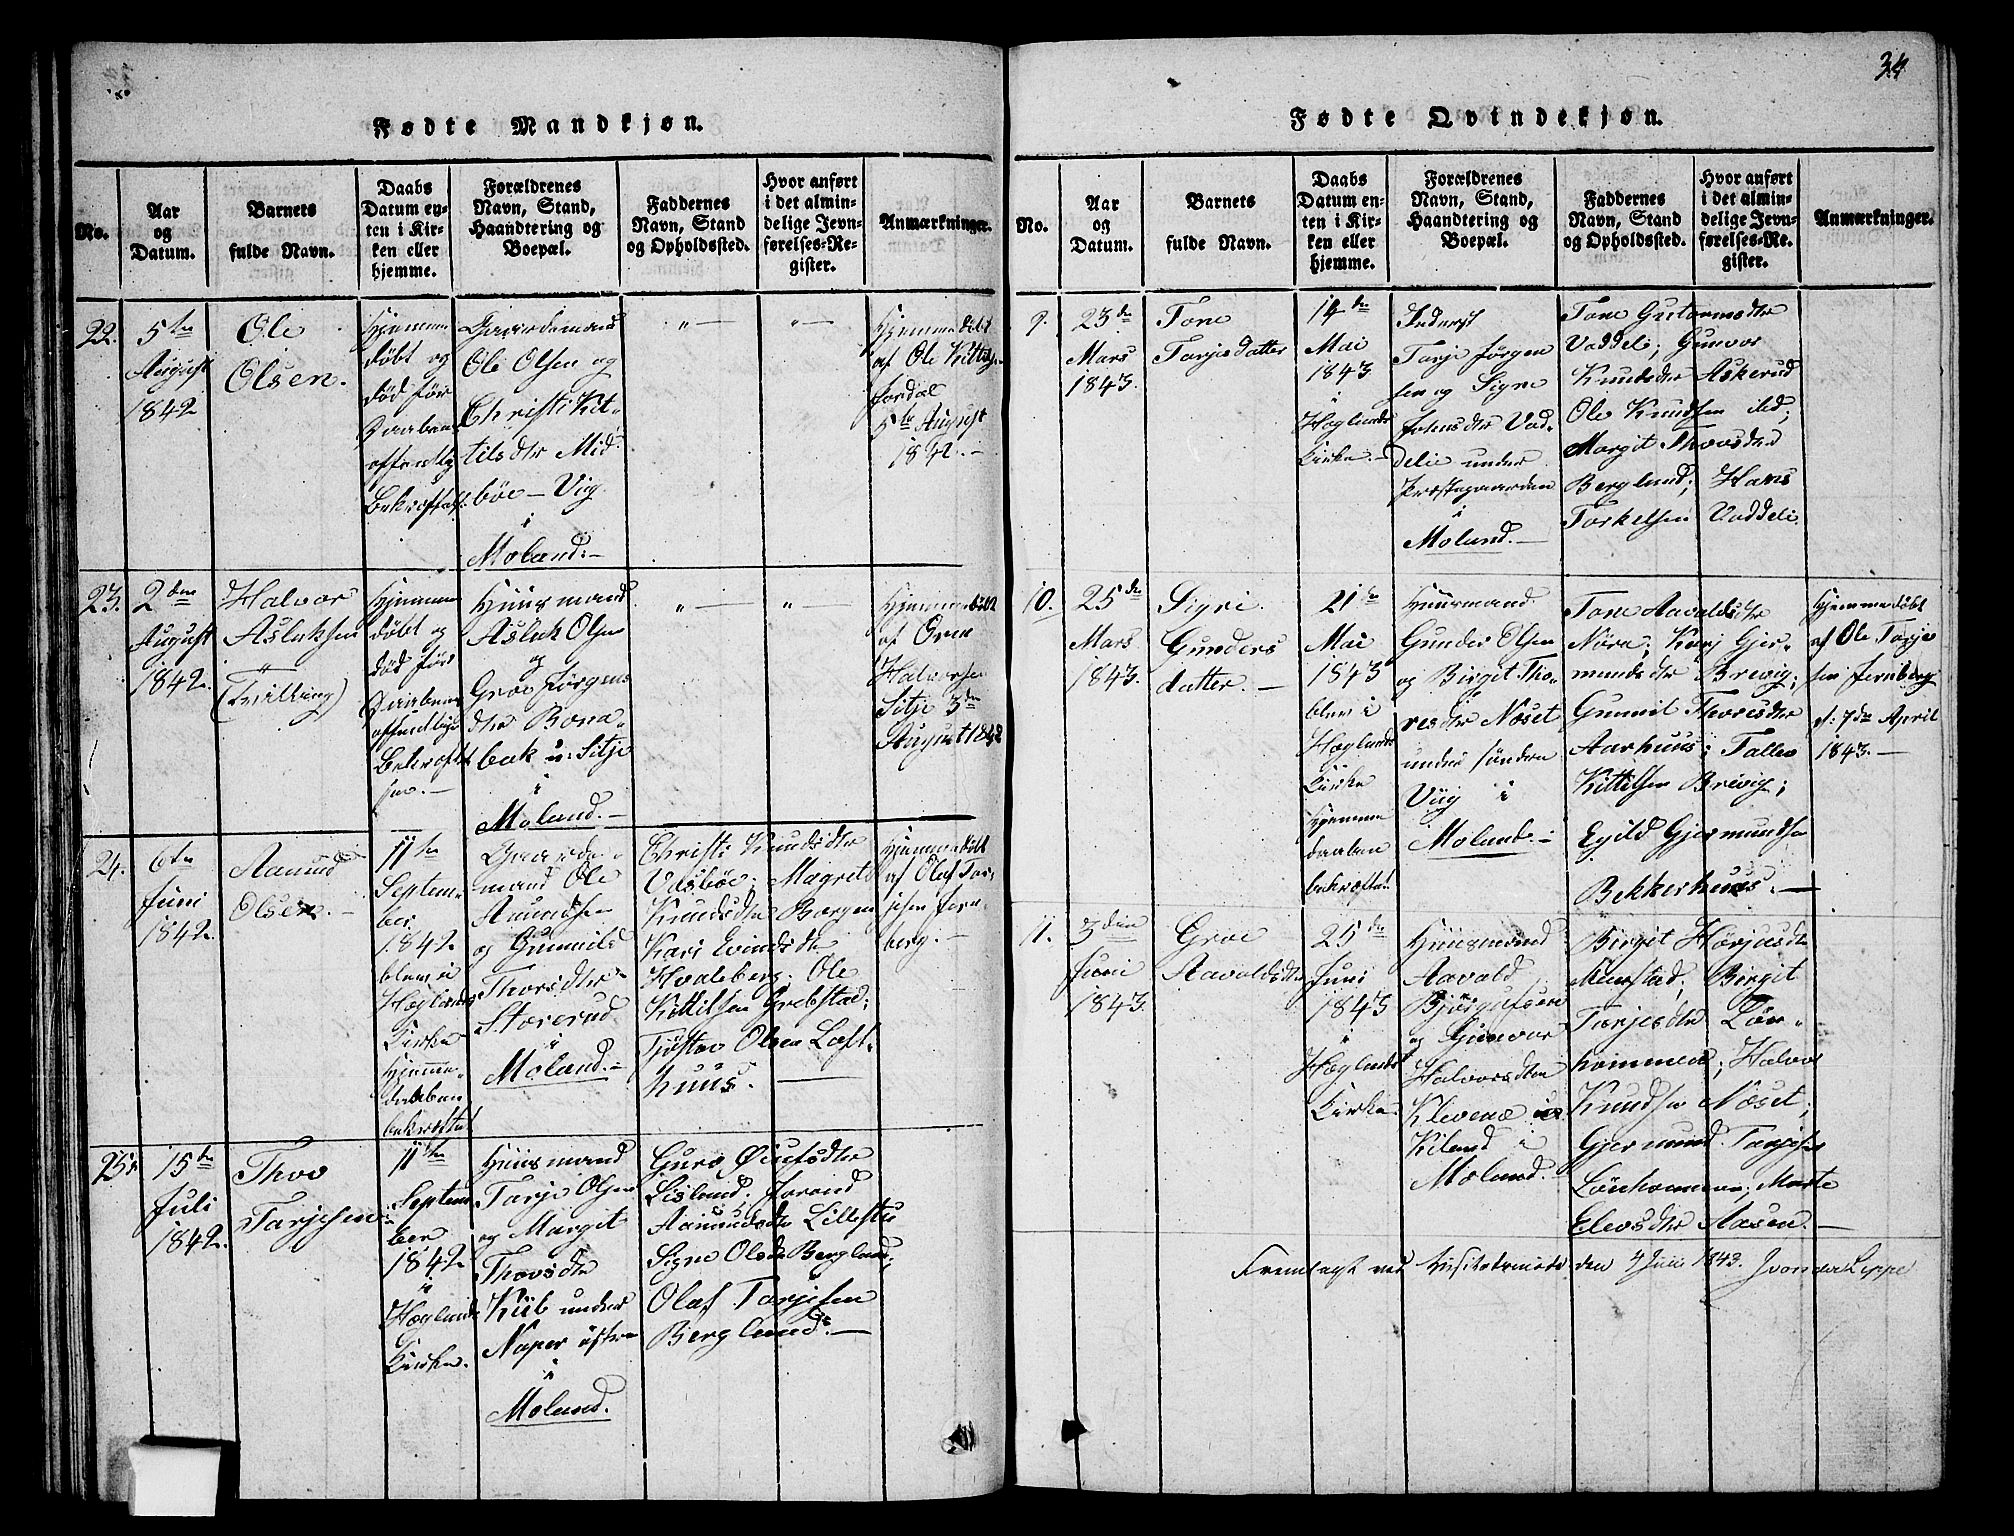 34
Fødte Mandkjøn.
No.
Aar
og
Datum.
Barnets
fulde Navn.
Daabs
Datum en-
ten i Kir-
ken eller
hjemme.
Forældrenes
Navn, Stand,
Haandtering og
Boepæl.
Faddernes
Navn, Stand
og Opholdssted.
Hvor anført
i det almin-
delige Jevn-
førelses-Re-
gister.
Anmærkninger.
22.
5te
August
1842
Ole
Olsen.
Hjemme
døbt og
død før
Daabens
offentlig
Bekræftelse
Gaardmand
Ole Olsen og
Christi Kit-
tilsdtr Mid-
bøe - Viig
i
Moland.-
"
"
Hjemmedøbt
af Ole Kittils
Jordal
5te August
1842.-
23.
2den
August
1842.
Halvor
Aslaksen
"
(Tvilling)
Hjemme
døbt og
død før
Daabens
offentlige
Bekræftel
sen.-
Huusmand
Aslak Olsen
og
Groe Jørgens
dtr Bora-
bak u: Sitje
i
Moland.-
"
"
Hjemmedøbt
af Oven
Halvorsen
Sitje 3de
August 1842
24.
6te
Juni
1842.
Aanund
Olsen.-
11te
Septem-
ber
1842
blev i
Høglands
Kirke
Hjemme-
daaben
bekræftet
Gaard-
mand Ole
Aanundsen
og Gunnild
Thorsdtr
Storerud
i
Moland.-
Christi Knudsdtr
Udsbøe; Magrete
Knudsdtr Borgen
Kari Evindsdtr
Hvaleberg; Ole
Kittilsen Grebstad;
Tjøstov Olsen Loft-
huus.
Hjemmedøbt
af Olaf Tar-
jesen Jern-
berg.-
25.
15te
Juli
1842.
Thov
Tarjesen
11te
Septem-
ber
1842
i
Høglands
Kirke.
Huusmand
Tarje Olsen
og Margit
Thovsdtr
Kiib under
Naper østre
i
Moland.
Guro Øiufsdtr
Lisland; Jorand
Aanundsdtr Lillestu
Signe Olsdtr Berglund;
Olaf Tarjesen
Berglund.-
Fødte Qvindekjøn.
No.
Aar
og
Datum.
Barnets
fulde Navn.
Daabs
Datum en-
ten i Kir-
ken eller
hjemme.
Forældrenes
Navn, Stand,
Haandtering og
Boepæl.
Faddernes
Navn, Stand
og Opholdssted.
Hvor anført
i det almin-
delige Jevn-
førelses-Re-
gister.
Anmærkninger.
9.
23de
Mars
1843.
Tone
Tarjesdatter
14de
Mai
1843
i
Høglands
Kirke.-
Inderst
Tarje Jørgen
sen og Signe
Johnsdtr Vad-
delie under
Præstegaarden
i
Moland.-
Tone Gutormsdtr
Vaddeli; Gunvor
Knudsdtr Askerud
Ole Knudsen ibd;
Margit Thovsdtr
Berglund; Hans
Torkelsen Vaddeli.
10.
25de
Mars
1843.
Sigri
Gunders
datter.-
21te
Mai
1843
blev i
Høglands
Kirke
Hjemme
daaben
bekræftet
Huusmand
Gunder Olsen
og Birgit Tho-
resdtr Nøset
under søndre
Viig i
Moland.-
Tone Aavaldsdtr
Nøra; Kari Gjer-
mundsdtr Brevig;
Gunnil Thoresdtr
Aarhuus; Tallev
Kittilsen Brevig;
Egild Gjermundsen
Bekkerhuus.-
Hjemmedøbt
af Ole Tarje
sen Jernberg
d: 7de April
1843.-
11.
3die
Juni
1843.
Groe
Aavaldsdtr
25de
Juni
1843
i
Høglands
Kirke.
Huusmand
Aavald
Bjørgufsen
og Gunvor
Halvorsdtr
Klevene u:
Kiland i
Moland.
Birgit Hørjusdtr
Birgit
Tarjesdtr Løn-
kommen; Halvor
Knudsen Nøset;
Gjermund Tarjesen
Lønkommen; Marte
Elevsdtr Aasen.-
Fremlagt ved Visitatsmøde den 4 Juli 1843. J von der Lippe